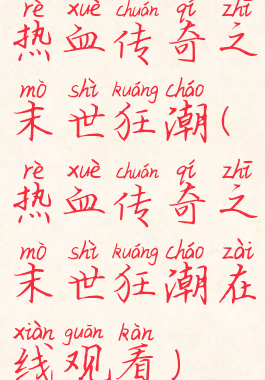 rè xuè chuán qí zhī
热血传奇之
mò shì kuáng cháo
末世狂潮(
rè xuè chuán qí zhī
热血传奇之
mò shì kuáng cháo zài
末世狂潮在
xiàn guān kàn
线观看)